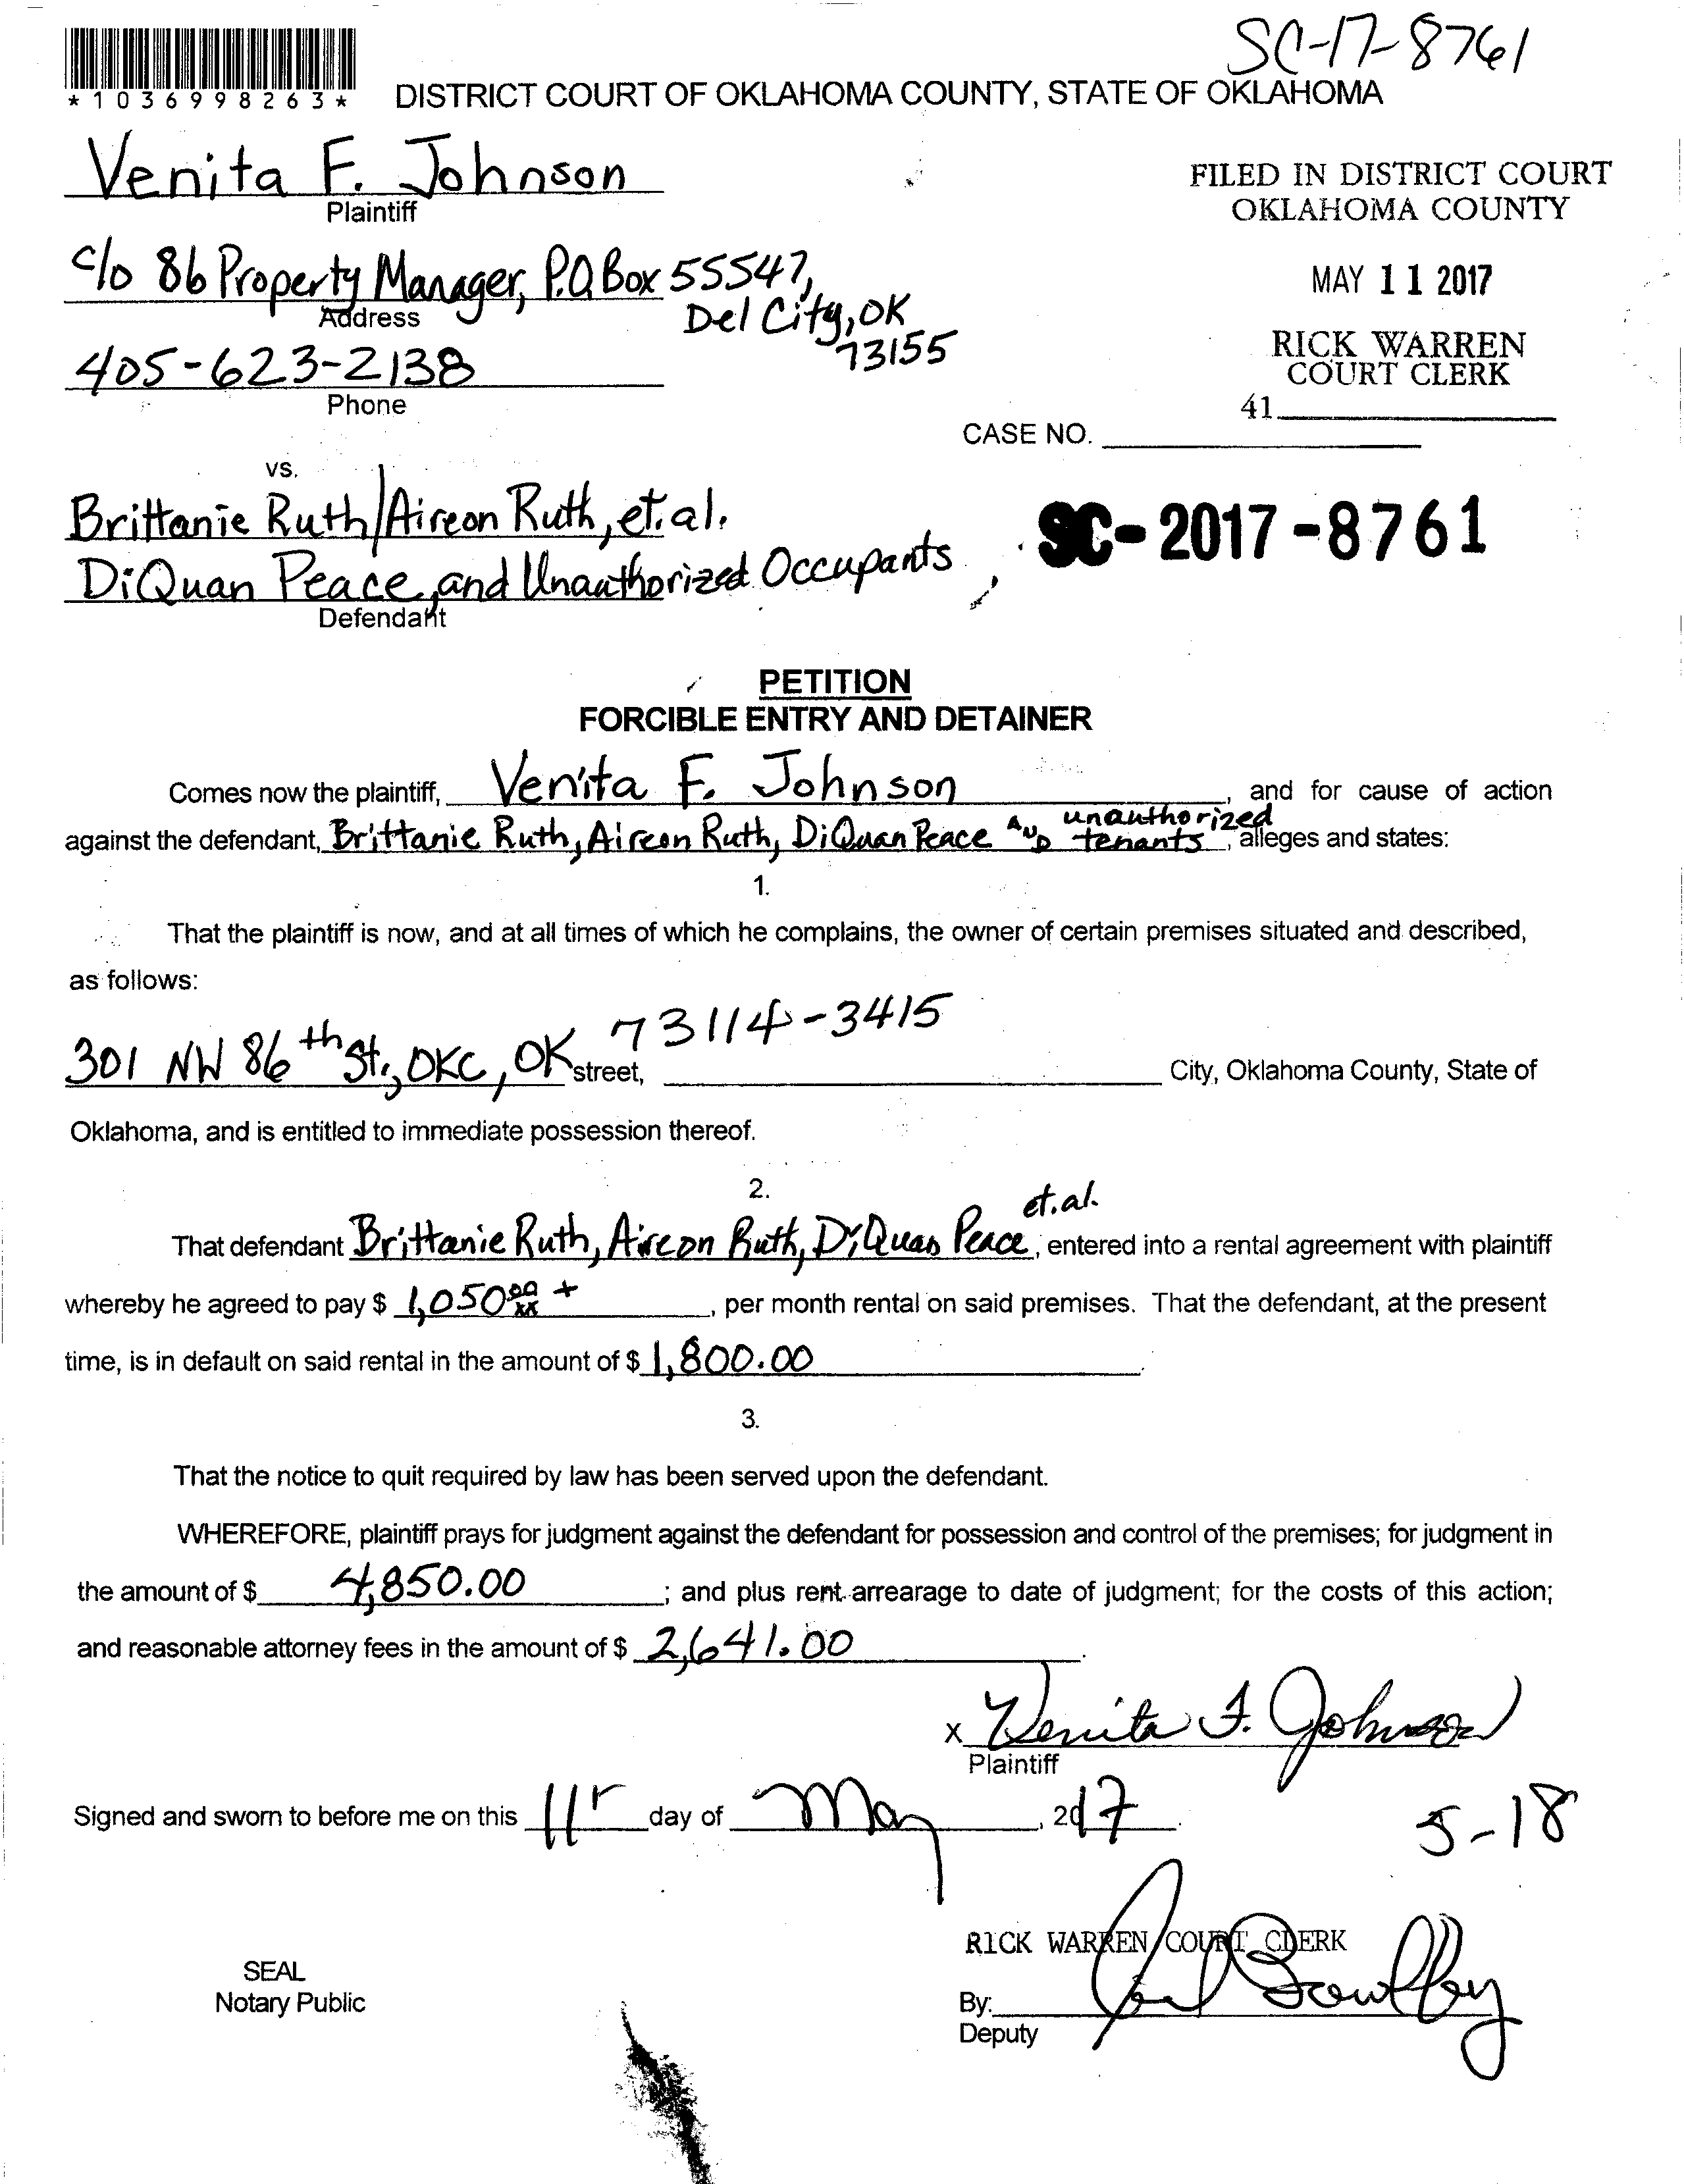 SC-17-8761
*1036998263*
DISTRICT COURT OF OKLAHOMA COUNTY, STATE OF OKLAHOMA
Venita F. Johnson
Plaintiff
FILED IN DISTRICT COURT
OKLAHOMA COUNTY
c/o 86 Property Manager, P.O Box 55547,
Del City, OK
73155
Address
MAY 11 2017
RICK WARREN
COURT CLERK
405-623-2138
Phone
41
CASE NO.
vs.
Brittanie Ruth/Aireon Ruth, et.al.
DiQuan Peace, and Unauthorized Occupants
Defendant
SC-2017-8761
PETITION
FORCIBLE ENTRY AND DETAINER
Comes now the plaintiff, Venita F. Johnson, and for cause of action
against the defendant, Brittanie Ruth, Aireon Ruth, DiQuan Peace AND unauthorized tenants, alleges and states:
1.
That the plaintiff is now, and at all times of which he complains, the owner of certain premises situated and described,
as follows:
301 NW 86th St., OKC, OK 73114-3415 street, City, Oklahoma County, State of
Oklahoma, and is entitled to immediate possession thereof.
2.
That defendant Brittanie Ruth, Aireon Ruth, DiQuan Peace et.al., entered into a rental agreement with plaintiff
whereby he agreed to pay $ 1,050 00/xx +, per month rental on said premises. That the defendant, at the present
time, is in default on said rental in the amount of $ 1,800.00.
3.
That the notice to quit required by law has been served upon the defendant.
WHEREFORE, plaintiff prays for judgment against the defendant for possession and control of the premises; for judgment in
the amount of $ 4,850.00; and plus rent arrearage to date of judgment; for the costs of this action;
and reasonable attorney fees in the amount of $ 2,641.00.
x Venita F. Johnson
Plaintiff
Signed and sworn to before me on this 11 day of May, 2017.
5-18
RICK WARREN COURT CLERK
SEAL
Notary Public
By:
Deputy